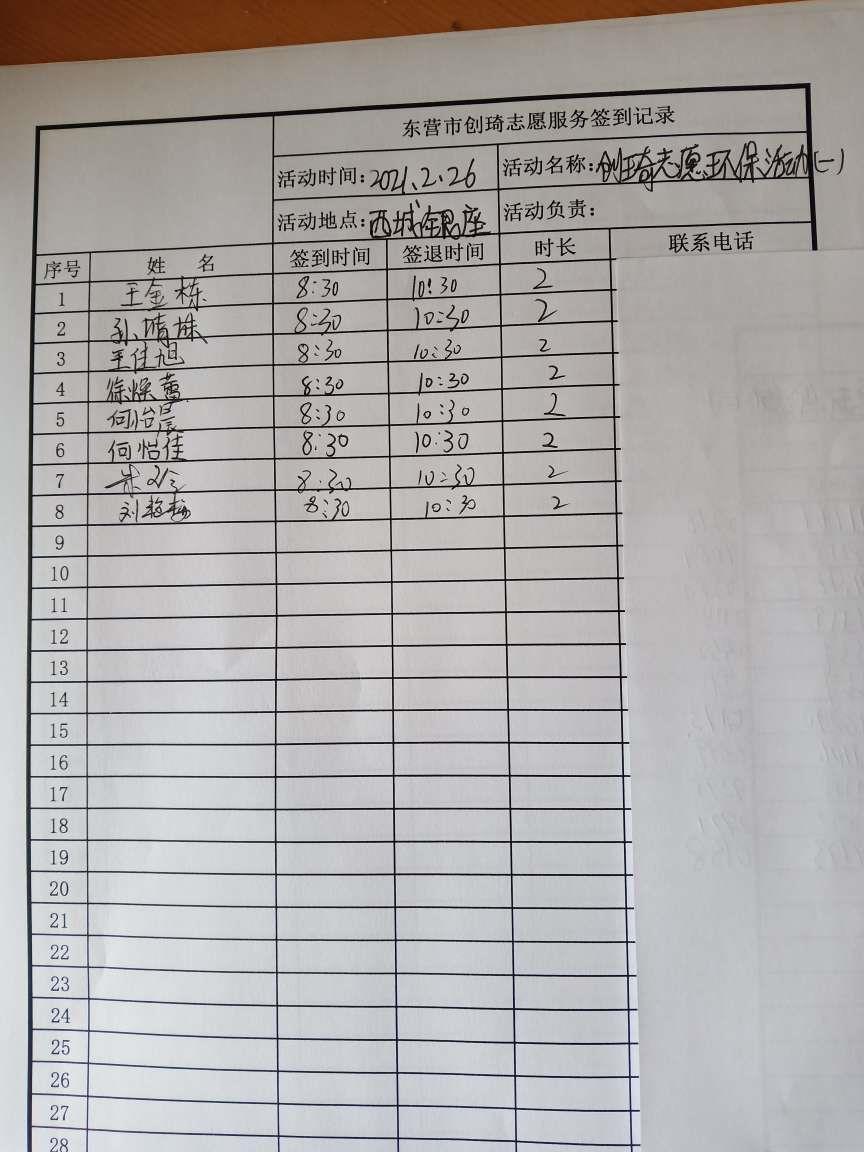 东营市创琦志愿服务签到记录
活动时间:2021.2.26 活动名称:创琦志愿环保活动(一)
活动地点:西城银座 活动负责:
序号 姓 名 签到时间 签退时间 时长 联系电话
1 王金栋 8:30 10:30 2
2 孙晴姝 8:30 10:30 2
3 王佳旭 8:30 10:30 2
4 徐 8:30 10:30 2
5 何怡晨 8:30 10:30 2
6 何怡佳 8:30 10:30 2
7 8:30 10:30 2
8 刘 8:30 10:30 2
9
10
11
12
13
14
15
16
17
18
19
20
21
22
23
24
25
26
27
28